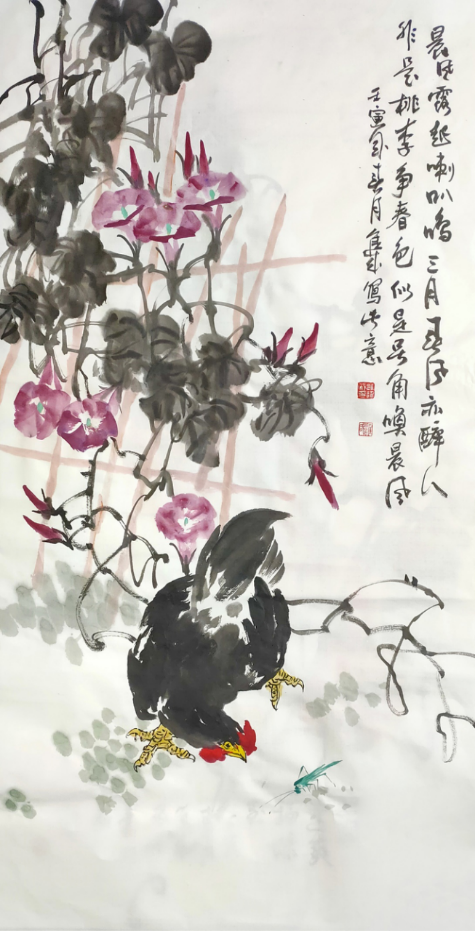 晨风露起喇叭鸣三月春风亦醉人
非是桃李争春色似是号角唤晨风
壬寅年春月寫此意